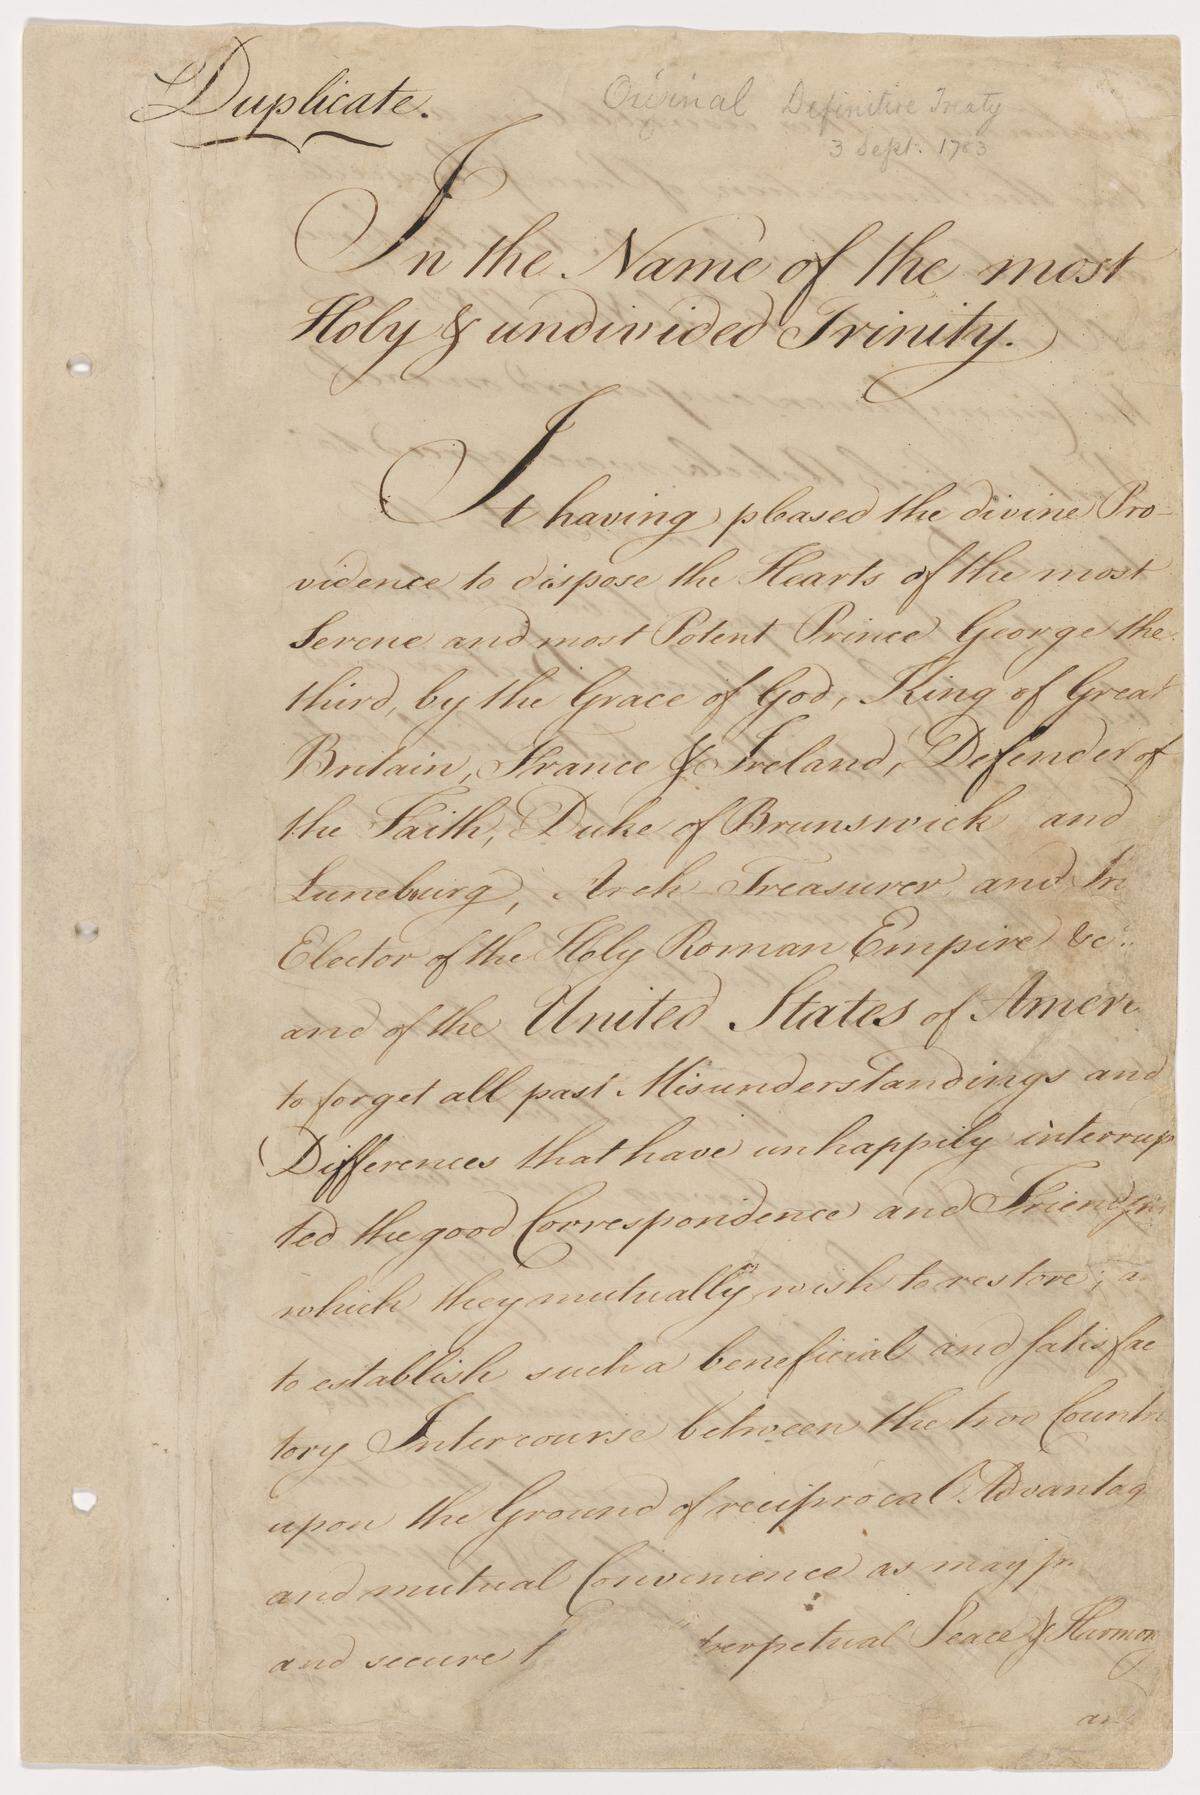 Duplicate.
Original Definitive Treaty
3 Sept. 1783
In the Name of the most
Holy & undivided Trinity.
It having pleased the divine Pro-
vidence to dispose the Hearts of the most
Serene and most Potent Prince George the
third, by the Grace of God, King of Great
Britain, France & Ireland, Defender of
the Faith, Duke of Brunswick and
Luneburg, Arch Treasurer, and
Elector of the Holy Roman Empire &c.
and of the United States of Ameri
to forget all past Misunderstandings and
Differences that have unhappily interrup
ted the good Correspondence and
which they mutually wish to restore;
to establish such a beneficial and satisfac
tory Intercourse between the two Countri
upon the Ground of reciprocal Advantag
and mutual Convenience as may
and secure perpetual Peace & Harmony